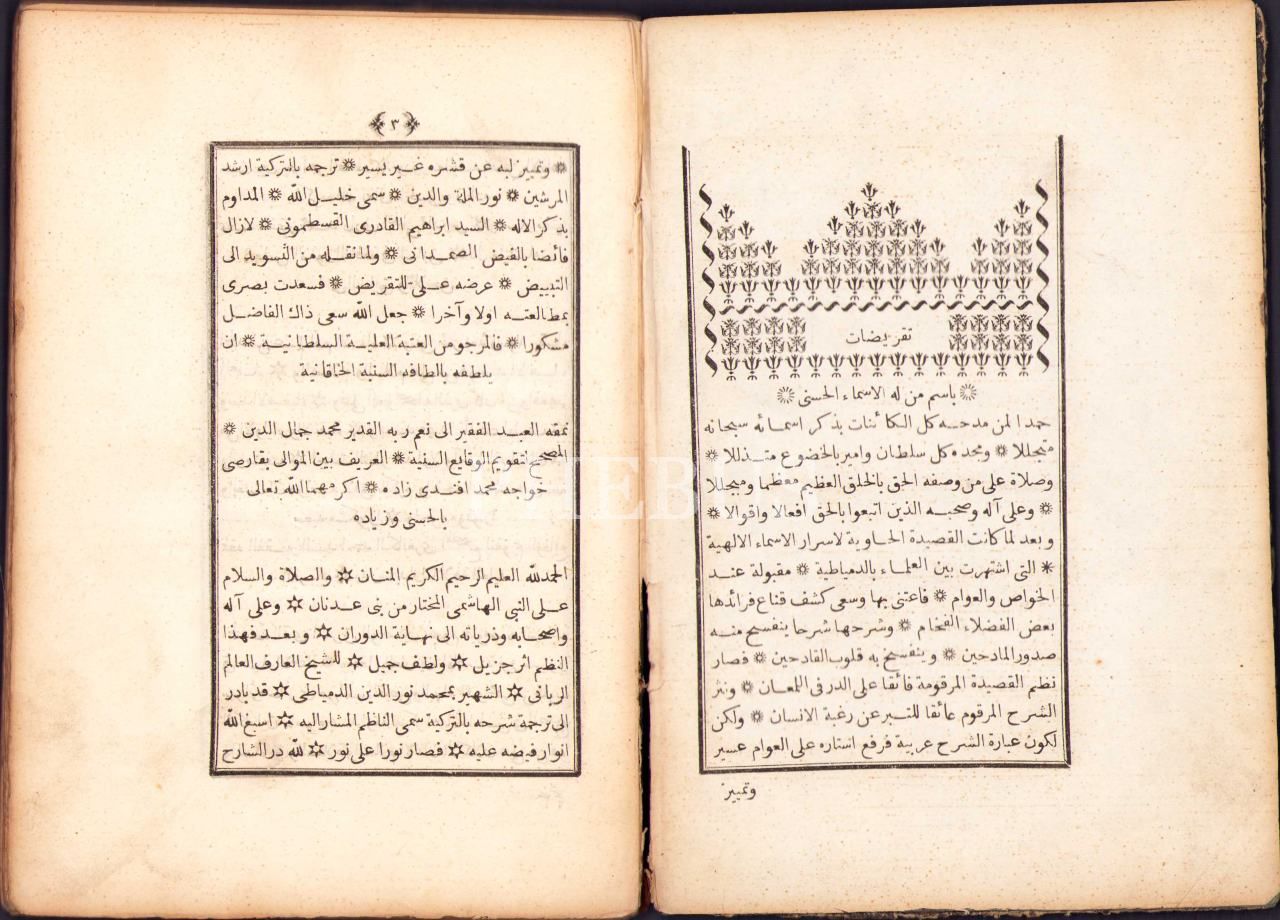 تقريضات
باسم من له الاسماء الحسنى
حمدا لمن مدحته كل الكائنات بذكر اسمائه سبحانه
متجللا ❋ ومجده كل سلطان وامير بالخضوع متذللا ❋
وصلاة على من وصفه الحق بالخلق العظيم معظما ومبجللا
❋ وعلى آله وصحبه الذين اتبعوا بالحق افعالا واقوالا ❋
وبعد لما كانت القصيدة الحاوية لاسرار الاسماء الالهية
❋ التى اشتهرت بين العلماء بالدمياطية ❋ مقبولة عند
الخواص والعوام ❋ فاعتنى بها وسعى كشف قناع فرائدها
بعض الفضلاء الفخام ❋ وشرحها شرحا ينفسح منه
صدور المادحين ❋ وينفسخ به قلوب القادحين ❋ فصار
نظم القصيدة المرقومة فائقا على الدر فى اللمعان ❋ ونثر
الشرح المرقوم عائقا للتبر عن رغبة الانسان ❋ ولكن
لكون عبارة الشرح عربية فرفع استاره على العوام عسير
وتمييز
٣
❋ وتمييز لبه عن قشره غير يسير ❋ ترجمه بالتركية ارشد
المرشين ❋ نور الملة والدين ❋ سمى خليل الله ❋ المداوم
بذكر الاله ❋ السيد ابراهيم القادرى القسطمونى ❋ لازال
فائضا بالفيض الصمدانى ❋ ولما نقله من التسويد الى
التبييض ❋ عرضه على للتقريض ❋ فسعدت بصرى
بمطالعته اولا وآخرا ❋ جعل الله سعى ذاك الفاضل
مشكورا ❋ فالمرجو من العتبة العلية السلطانية ❋ ان
يلطفه بالطافه السنية الخاقانية
نمقه العبد الفقير الى نعم ربه القدير محمد جمال الدين ❋
المصحح لتقويم الوقايع السنية ❋ العريف بين الموالى بقارصى
خواجه محمد افندى زاده ❋ اكرمهما الله تعالى
بالحسنى وزياده
الحمد لله العليم الرحيم الكريم المنان ✡ والصلاة والسلام
على النبى الهاشمى المختار من بنى عدنان ✡ وعلى آله
واصحابه وذرياته الى نهاية الدوران ✡ وبعد فهذا
النظم اثر جزيل ✡ ولطف جميل ✡ للشيخ العارف العالم
الربانى ✡ الشهير بمحمد نور الدين الدمياطى ✡ قد بادر
الى ترجمة شرحه بالتركية سمى الناظم المشار اليه ✡ اسبغ الله
انوار فيضه عليه ✡ فصار نورا على نور ✡ لله در الشارح